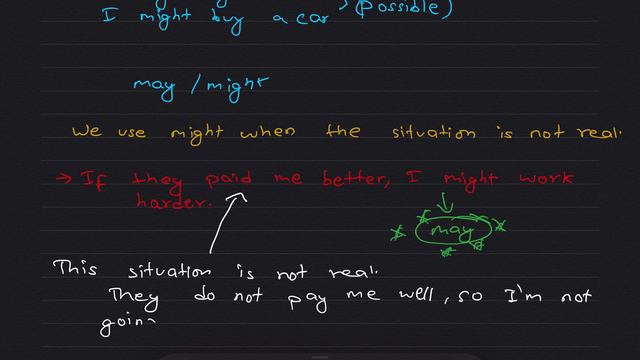 I might buy a car (possible)
may / might
We use might when the situation is not real.
→ If they paid me better, I might work
harder.
may
This situation is not real.
They do not pay me well, so I'm not
goin